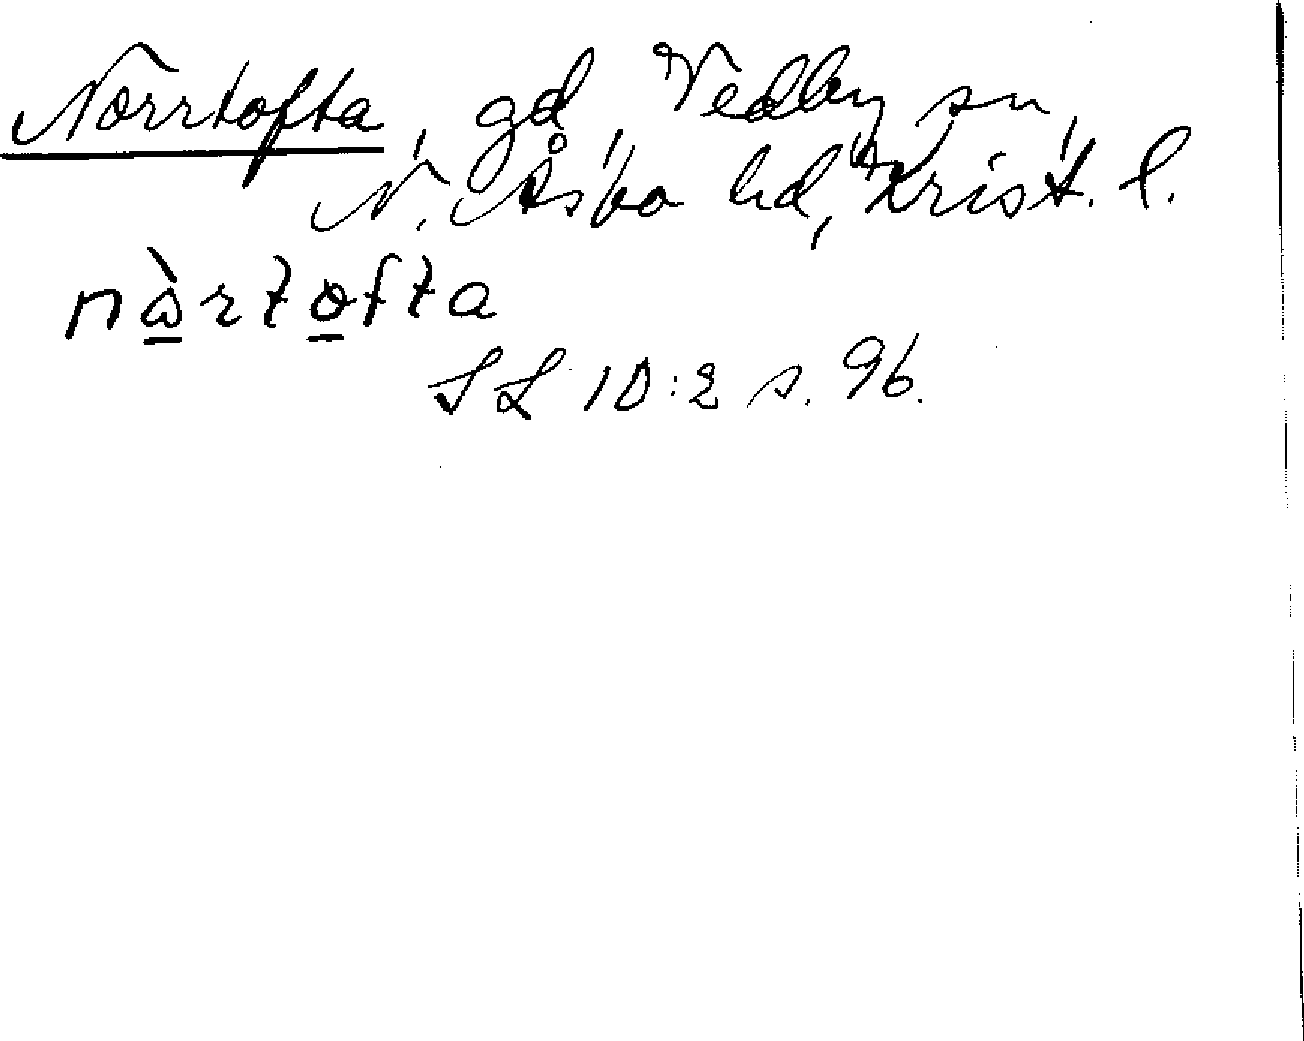 Norrtofta, gd Vedby sn,
N. Åsbo hd, Krist. l.
nὰrtofta
SL 10:2 s. 96.